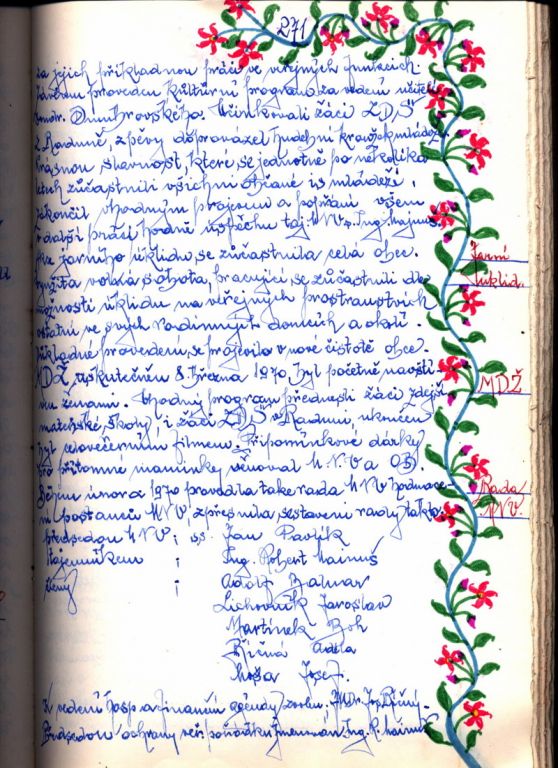 271
za jejich příkladnou práci ve veřejných funkcích
závěrem proveden kulturní program za vedení učitele
soudr. Dombrovského. Účinkovali žáci ZDŠ
z Raduně, zpěvy doprovázel hudební kroužek mládeže
Krásnou slavnost, které se jednotně po několika
letech zúčastnili všichni občané i s mládeží,
zakončil vhodným projevem a popřání všem
v další práci hodně úspěchu taj. MNV s. Ing. Majnuš.
jarního úklidu, se zúčastnila celá obec.
volná sobota, pracující, se zúčastnili dle
možností úklidu na veřejných prostranstvích
ostatní ve svých rodinných domcích a okolí.
Příkladné provedení, se projevilo v nové čistotě obce.
MDŽ, uskutečněn 8 března 1970, byl početně navští-
ven ženami. Vhodný program přednesli žáci zdejší
mateřské školy i žáci ZDŠ v Raduni, ukončen
byl celovečerním filmem. Připomínkové dárky
pro přítomné maminky věnoval MNV a OB.
února 1970 provedla take rada MNV
poslanců MNV, zpřesnila, sestavení rady takto.
předsedou MNV : s.s. Jan Pavlík
tajemníkem : Ing. Robert Mainuš
členy : Adolf
Lichovník Jaroslav
Martínek
Řičná Adéla
Moša Josef.
K vedení hosp. a finanční agendy zvolen, JMDr. Jos. Říčný.
Předsedou ochrany veř. pořádku jmenován, Ing. R. Mainuš
Jarní
úklid.
MDŽ
Rada
MNV.